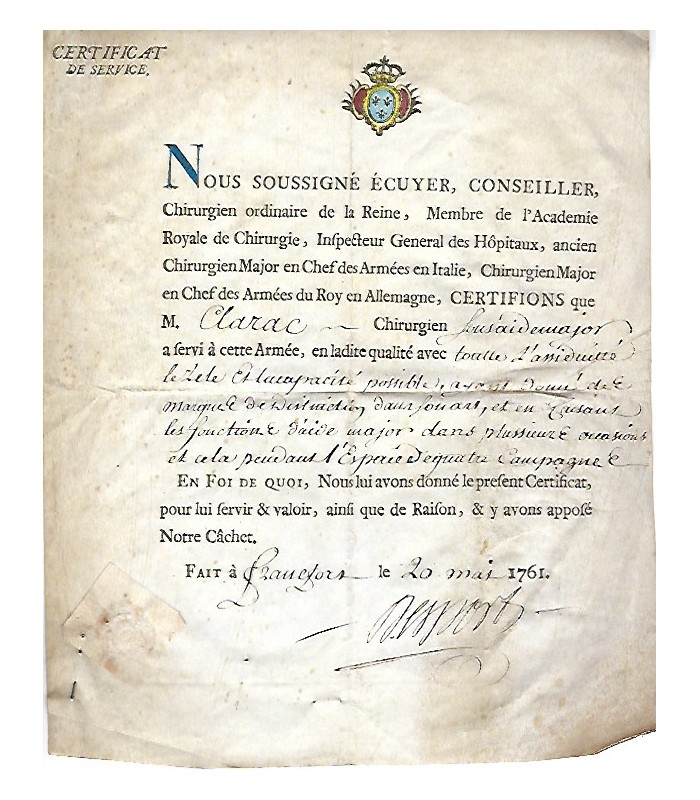 CERTIFICAT
DE SERVICE.
NOUS SOUSSIGNÉ ÉCUYER, CONSEILLER,
Chirurgien ordinaire de la Reine, Membre de l'Academie
Royale de Chirurgie, Inſpecteur General des Hôpitaux, ancien
Chirurgien Major en Chef des Armées en Italie, Chirurgien Major
en Chef des Armées du Roy en Allemagne, CERTIFIONS que
M. Clarac Chirurgien sous aide major
a ſervi à cette Armée, en ladite qualité avec toutte L'assiduitté
le Zele Et lacapacité possible, ayant donné des
marques de Distinction dans son art, et en faisant
les fonctions d'aide major dans plussieurs occasions
et cela pendant l'Espace de quatre Campagnes
EN FOI DE QUOI, Nous lui avons donné le preſent Certificat,
pour lui ſervir & valoir, ainſi que de Raiſon, & y avons appoſé
Notre Câchet.
FAIT à francfort le 20 mai 1761.